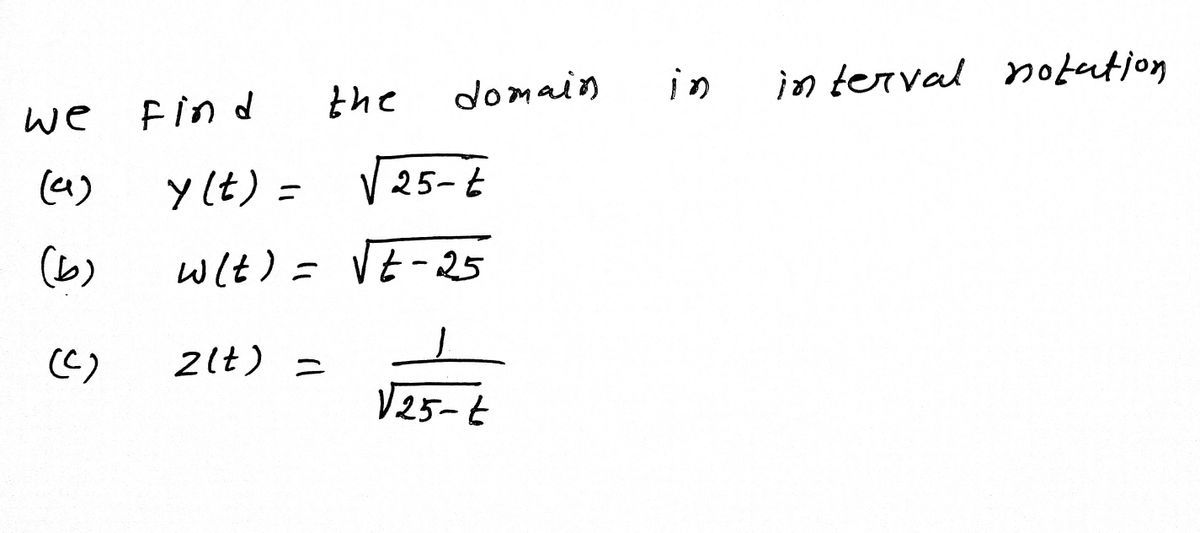 we Find the domain in interval notation
(a) y(t) = √25-t
(b) w(t) = √t-25
(c) z(t) = 1/√25-t